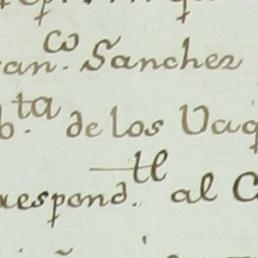 an.co Sanchez
b.ta de los Vaq
respond.te al C